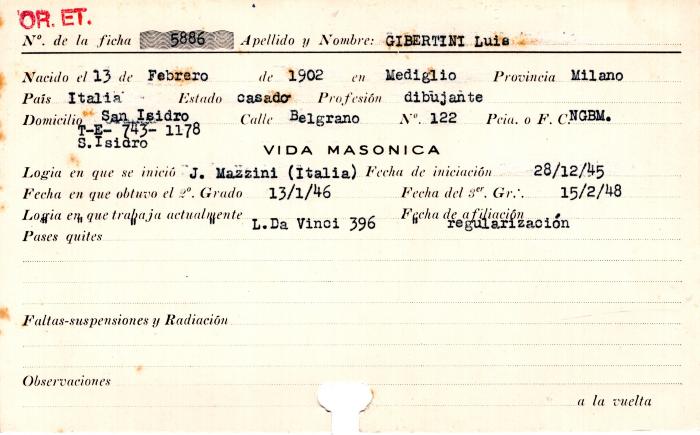 OR. ET.
Nº. de la ficha 5886 Apellido y Nombre: GIBERTINI Luis
Nacido el 13 de Febrero de 1902 en Mediglio Provincia Milano
País Italia Estado casado Profesión dibujante
Domicilio San Isidro Calle Belgrano Nº. 122 Pcia. o F. C. NGBM.
T-E- 743- 1178
S.Isidro
VIDA MASONICA
Logia en que se inició J. Mazzini (Italia) Fecha de iniciación 28/12/45
Fecha en que obtuvo el 2º. Grado 13/1/46 Fecha del 3er. Gr∴. 15/2/48
Logia en que trabaja actualmente L.Da Vinci 396 Fecha de afiliación
" " " " " regularización
Pases quites
Faltas-suspensiones y Radiación
Observaciones
a la vuelta